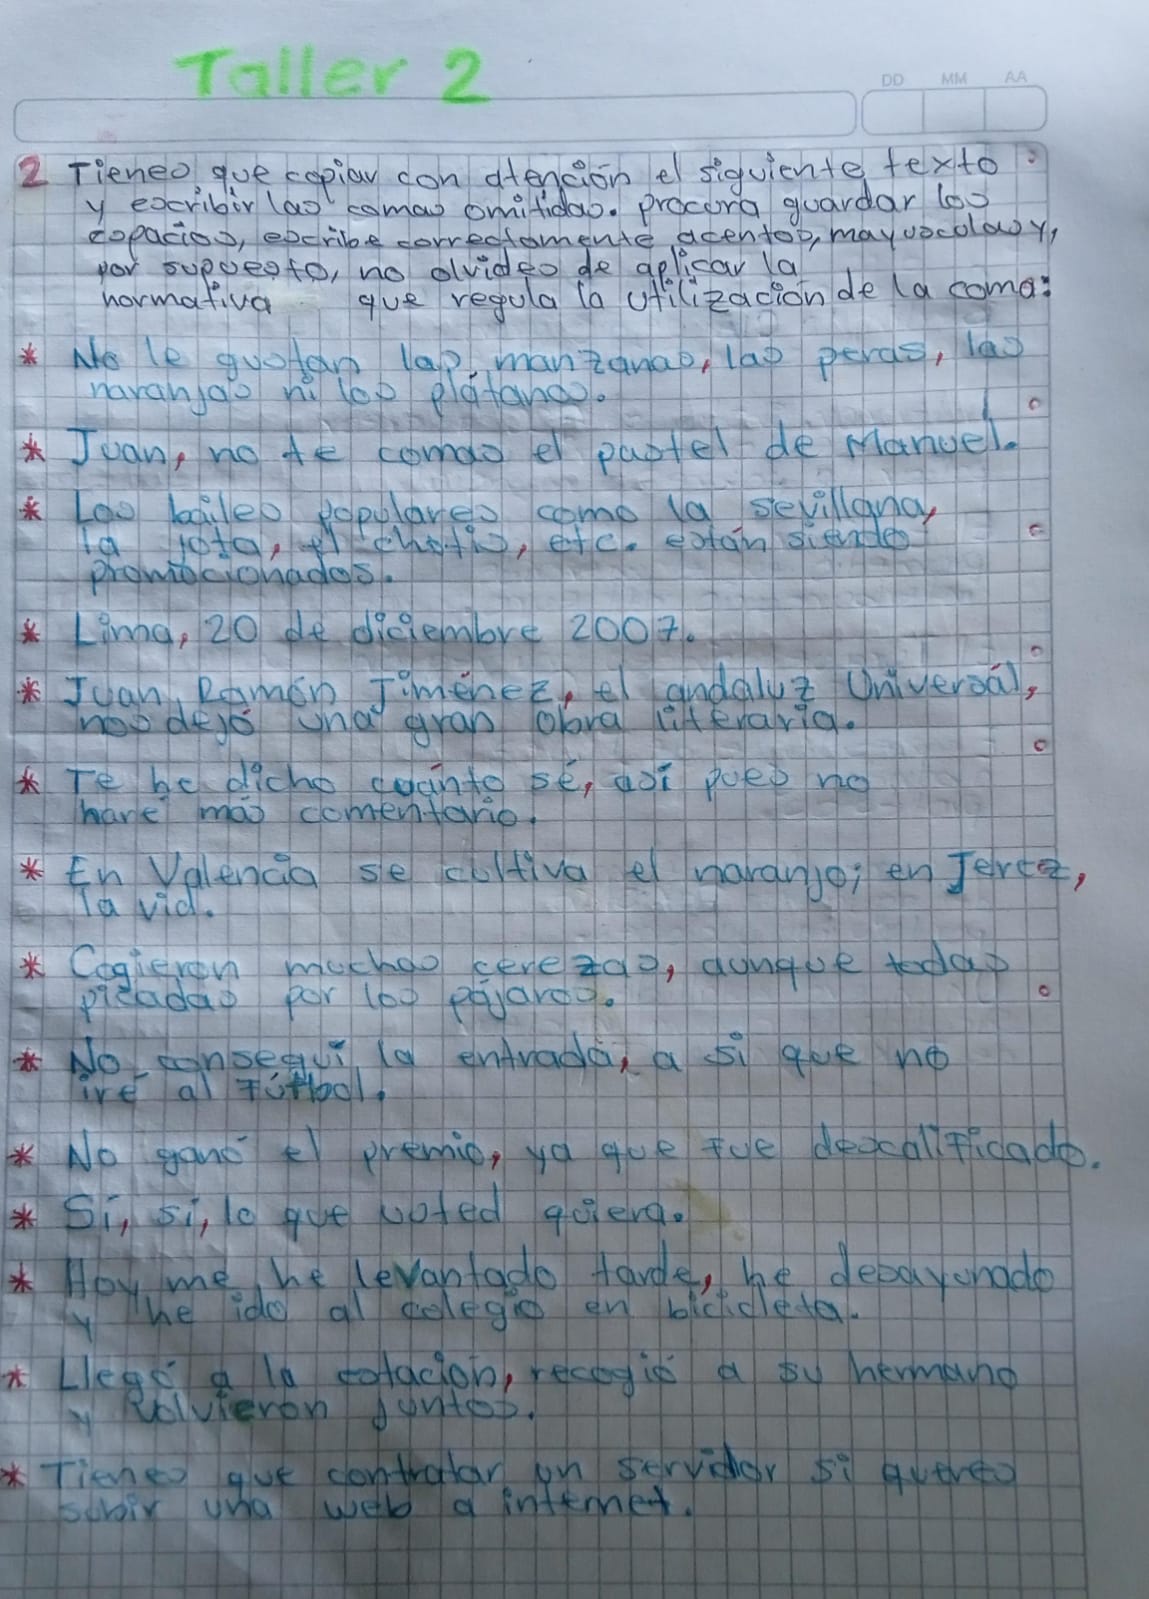 Taller 2
DD MM AA
2 Tienes que copiar con atención el siguiente texto
y escribir las comas omitidas. procura guardar los
espacios, escribe correctamente acentos, mayusculas y,
por supuesto, no olvides de aplicar la
normativa que regula la utilización de la coma:
* No le gustan las manzanas, las peras, las
naranjas ni los plátanos.
* Juan, no te comas el pastel de Manuel.
* Los bailes populares como la sevillana,
la jota, el chotis, etc. están siendo
promocionados.
* Lima, 20 de diciembre 2007.
* Juan Ramón Jiménez, el andaluz Universal,
nos dejó una gran obra literaria.
* Te he dicho cuánto sé, así pues no
haré más comentario.
* En Valencia se cultiva el naranjo; en Jerez,
la vid.
* Cogieron muchas cerezas, aunque todas
picadas por los pájaros.
* No conseguí la entrada, a si que no
iré al Fútbol.
* No ganó el premio, ya que fue descalificado.
* Sí, sí, lo que usted quiera.
* Hoy me he levantado tarde, he desayunado
y he ido al colegio en bicicleta.
* Llegó a la estación, recogió a su hermano
y volvieron juntos.
* Tienes que contratar un servidor si quieres
subir una web a internet.